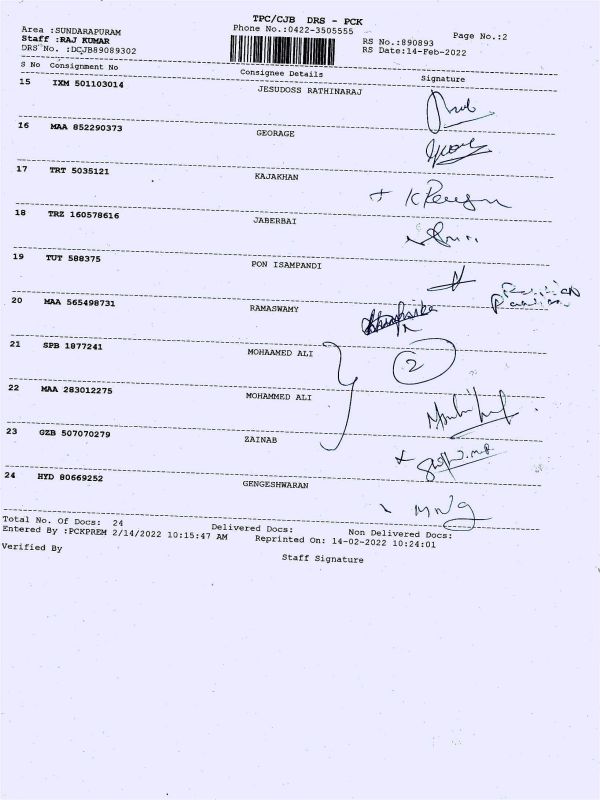 TPC/CJB DRS - PCK
Area :SUNDARAPURAM Phone No.:0422-3505555 Page No.:2
Staff :RAJ KUMAR RS No.:890893
DRS No. :DCJB89089302 RS Date:14-Feb-2022
S No Consignment No Consignee Details Signature
15 IXM 501103014 JESUDOSS RATHINARAJ
16 MAA 852290373 GEORAGE
17 TRT 5035121 KAJAKHAN
18 TRZ 160578616 JABERBAI
19 TUT 588375 PON ISAMPANDI
20 MAA 565498731 RAMASWAMY
21 SPB 1877241 MOHAAMED ALI 2
22 MAA 283012275 MOHAMMED ALI
23 GZB 507070279 ZAINAB
24 HYD 80669252 GENGESHWARAN
Total No. Of Docs: 24 Delivered Docs: Non Delivered Docs:
Entered By :PCKPREM 2/14/2022 10:15:47 AM Reprinted On: 14-02-2022 10:24:01
Verified By Staff Signature